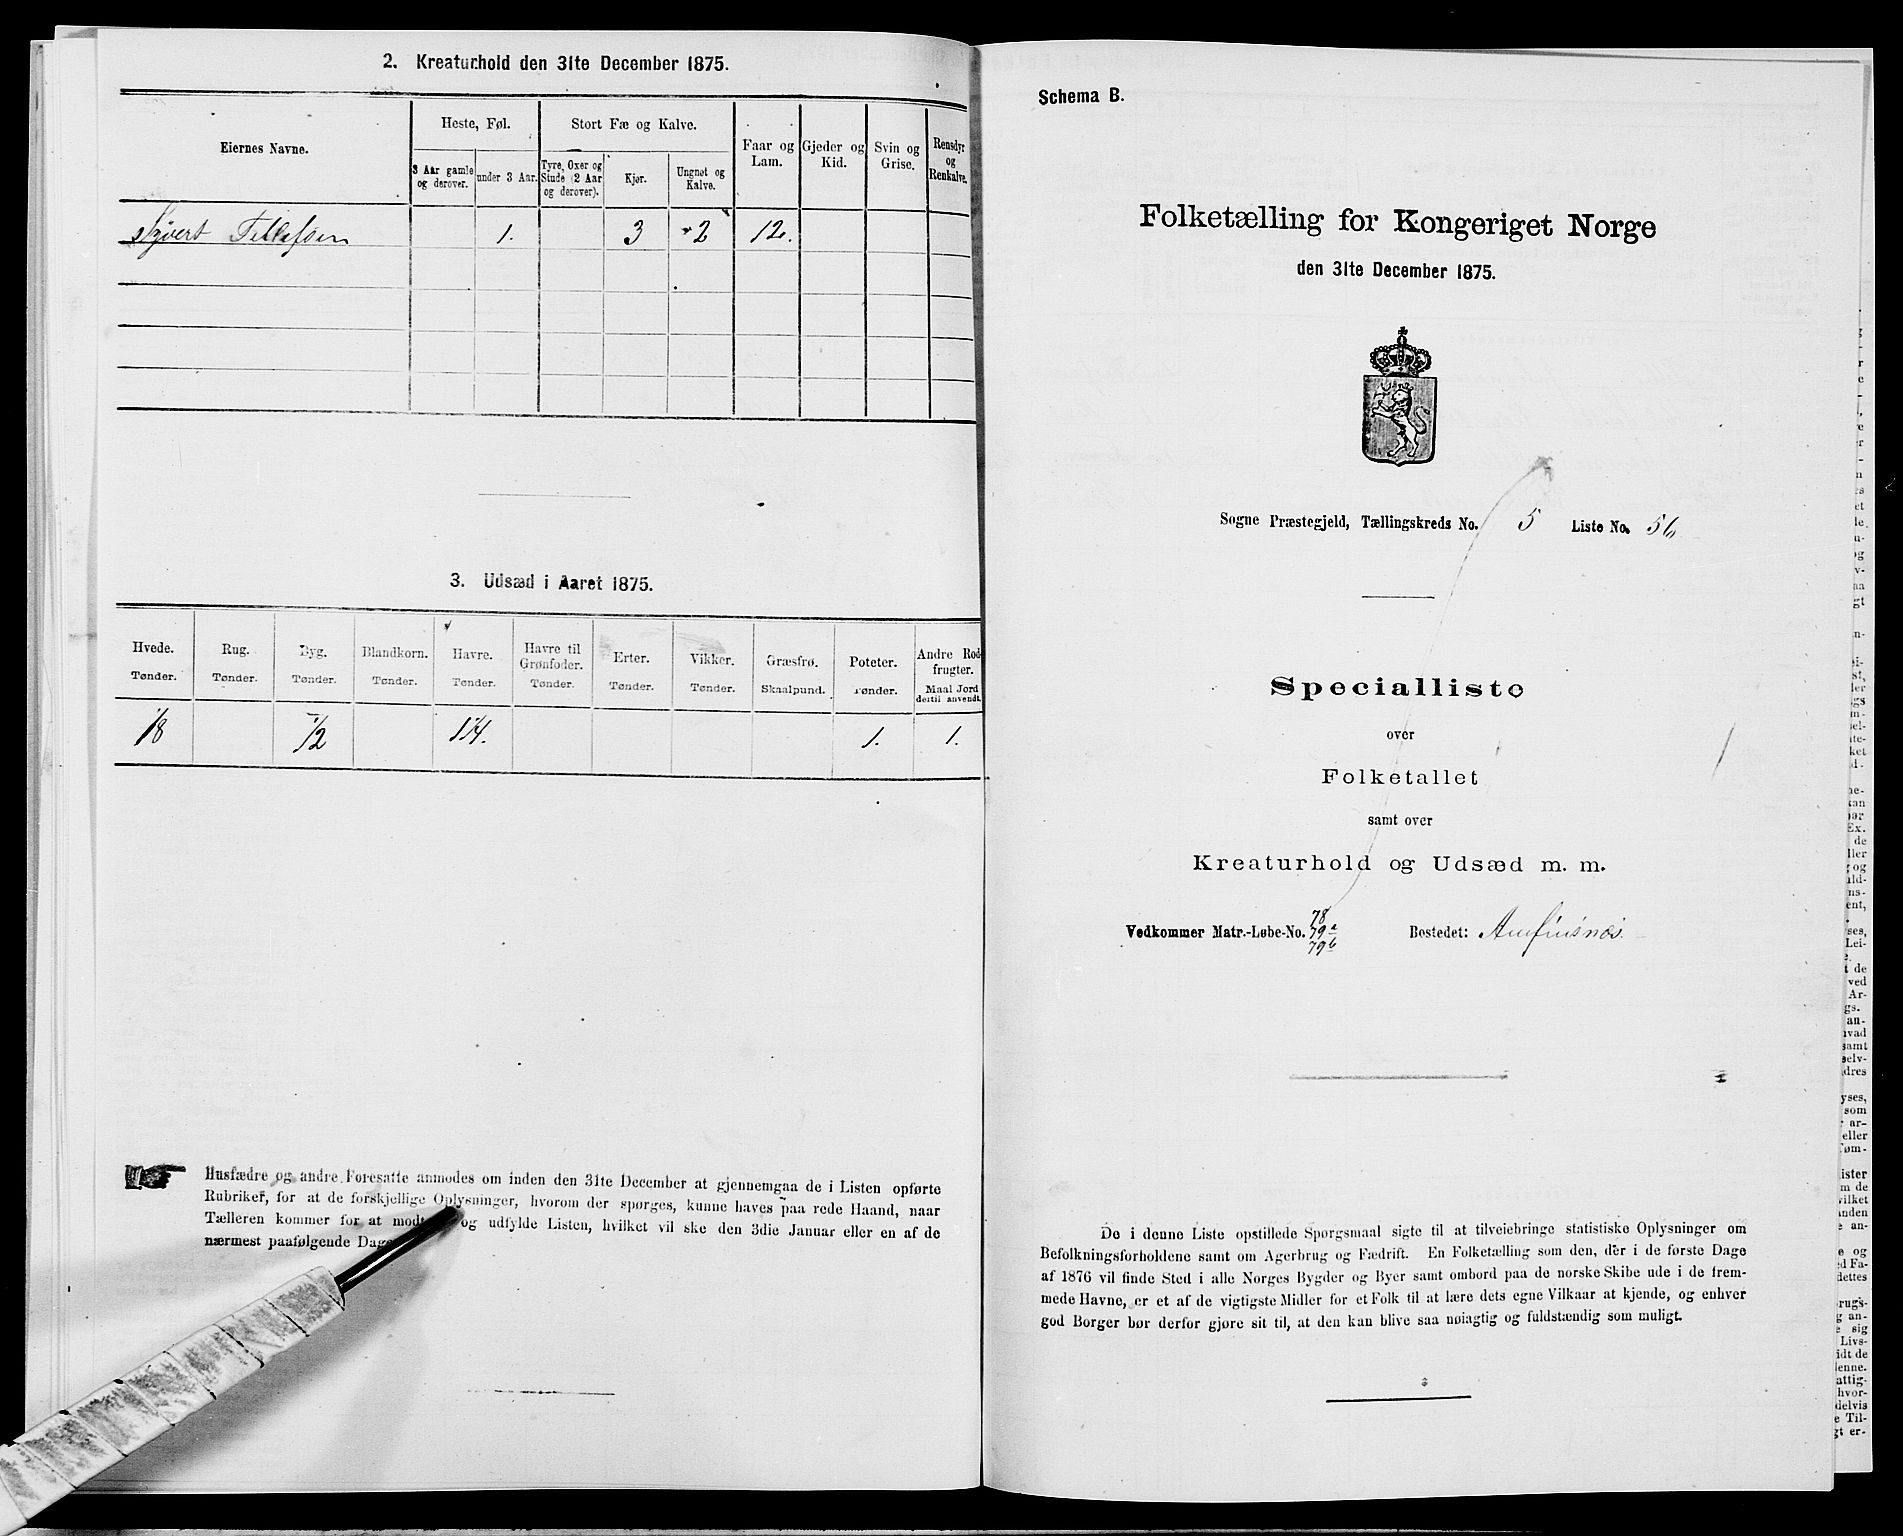 2. Kreaturhold den 31te December 1875.
Eiernes Navne.
Heste, Føl.
3 Aar gamle og derover.
under 3 Aar.
Stort Fæ og Kalve.
Tyre, Oxer og Stude (2 Aar og derover).
Kjør.
Ungnøt og Kalve.
Faar og Lam.
Gjeder og Kid.
Svin og Grise.
Rensdyr og Renkalve.
Syvert Tellefsen 1. 3 2 12.
3. Udsæd i Aaret 1875.
Hvede. Tønder.
Rug. Tønder.
Byg. Tønder.
Blandkorn. Tønder.
Havre. Tønder.
Havre til Grønfoder. Tønder.
Erter. Tønder.
Vikker. Tønder.
Græsfrø. Skaalpund.
Poteter. Tønder.
Andre Rodfrugter. Maal Jord dertil anvendt.
1/8 1/2 1 1/4. 1. 1.
Husfædre og andre Foresatte anmodes om inden den 31te December at gjennemgaa de i Listen opførte
Rubriker, for at de forskjellige Oplysninger, hvorom der spørges, kunne haves paa rede Haand, naar
Tælleren kommer for at og udfylde Listen, hvilket vil ske den 3die Januar eller en af de
nærmest paafølgende
Schema B.
Folketælling for Kongeriget Norge
den 31te December 1875.
Sogne Præstegjeld, Tællingskreds No. 5 Liste No. 56
Specialliste
over
Folketallet
samt over
Kreaturhold og Udsæd m. m.
Vedkommer Matr.-Løbe-No. 78 79a 79b Bostedet: Amfinsnæs.
De i denne Liste opstillede Spørgsmaal sigte til at tilveiebringe statistiske Oplysninger om
Befolkningsforholdene samt om Agerbrug og Fædrift. En Folketælling som den, der i de første Dage
af 1876 vil finde Sted i alle Norges Bygder og Byer samt ombord paa de norske Skibe ude i de frem-
mede Havne, er et af de vigtigste Midler for et Folk til at lære dets egne Vilkaar at kjende, og enhver
god Borger bør derfor gjøre sit til, at den kan blive saa nøiagtig og fuldstændig som muligt.